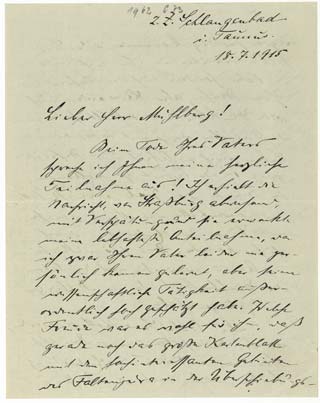 1962 833
z. Z. Schlangenbad
i. Taunus.
18.7.1915
Lieber Herr Mühlberg!
Beim Tode Ihres Vaters
spreche ich Ihnen meine herzliche
Teilnahme aus! Ich erhielt die
Nachricht, von Straßburg abwesend,
mit Verspätung und sie erweckte
meine lebhafteste Anteilnahme, da
ich zwar Ihren Vater leider nie per-
sönlich kennen gelernt, aber seine
wissenschaftliche Tätigkeit außer-
ordentlich hoch geschätzt habe. Welche
Freude war es wohl für ihn, daß
gerade noch das große Kartenblatt
mit den hochinteressanten Gebieten
des Faltenjura in der Überschiebungs-